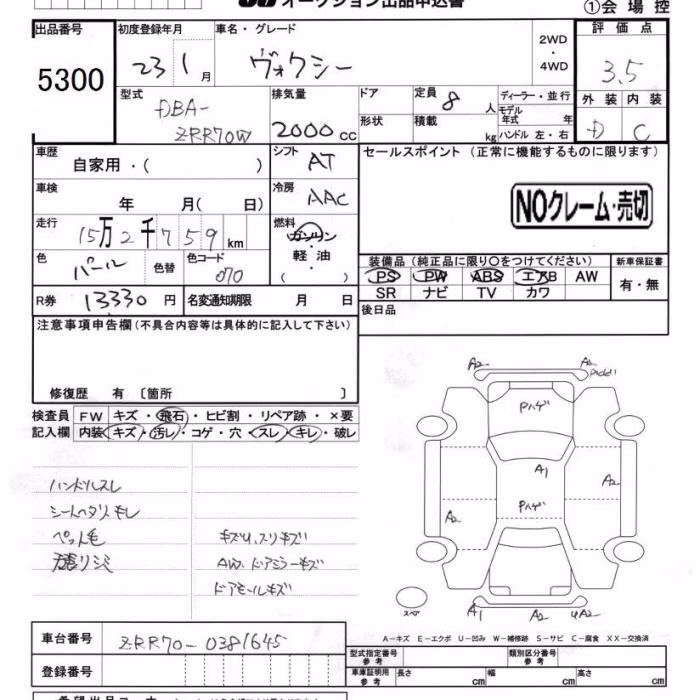 オークション出品申込書
①会場控
出品番号
5300
初度登録年月
23 1月
車名・グレード
ヴォクシー
2WD
・
4WD
評価点
3.5
外装 内装
D C
型式
DBA-
ZRR70W
排気量
2000cc
ドア
形状
定員 8人
積載 kg
ディーラー・並行
モデル年式 年
ハンドル 左・右
車歴
自家用・( )
シフト
AT
セールスポイント (正常に機能するものに限ります)
NOクレーム・売切
車検
年 月( 日)
冷房
AAC
走行
15万2千759km
燃料
ガソリン
・
軽油
( )
色
パール
色替
色コード
070
装備品 (純正品に限り〇をつけてください)
PS PW ABS エアB AW
SR ナビ TV カワ
新車保証書
有・無
R券 13330円
名変通知期限 月 日
後日品
注意事項申告欄(不具合内容等は具体的に記入して下さい)
修復歴 有 〔箇所 〕
検査員
記入欄
FW キズ・飛石・ヒビ割・リペア跡・×要
内装 キズ・汚レ・コゲ・穴・スレ・キレ・破レ
ハンドルスレ
シートヘタリ キレ
ペット毛
天張リシミ
キズU、スリキズ
AW、ドアミラーキズ
ドアモールキズ
A2 A2
Pハゲ
A1
Pハゲ
A2
A2
スペア
A1 A2 UA2
A-キズ E-エクボ U-凹み W-補修跡 S-サビ C-腐食 XX-交換済
車台番号
ZRR70-0381645
登録番号
型式指定番号
参考
類別区分番号
参考
車庫証明用
参考
長さ cm
幅 cm
高さ cm